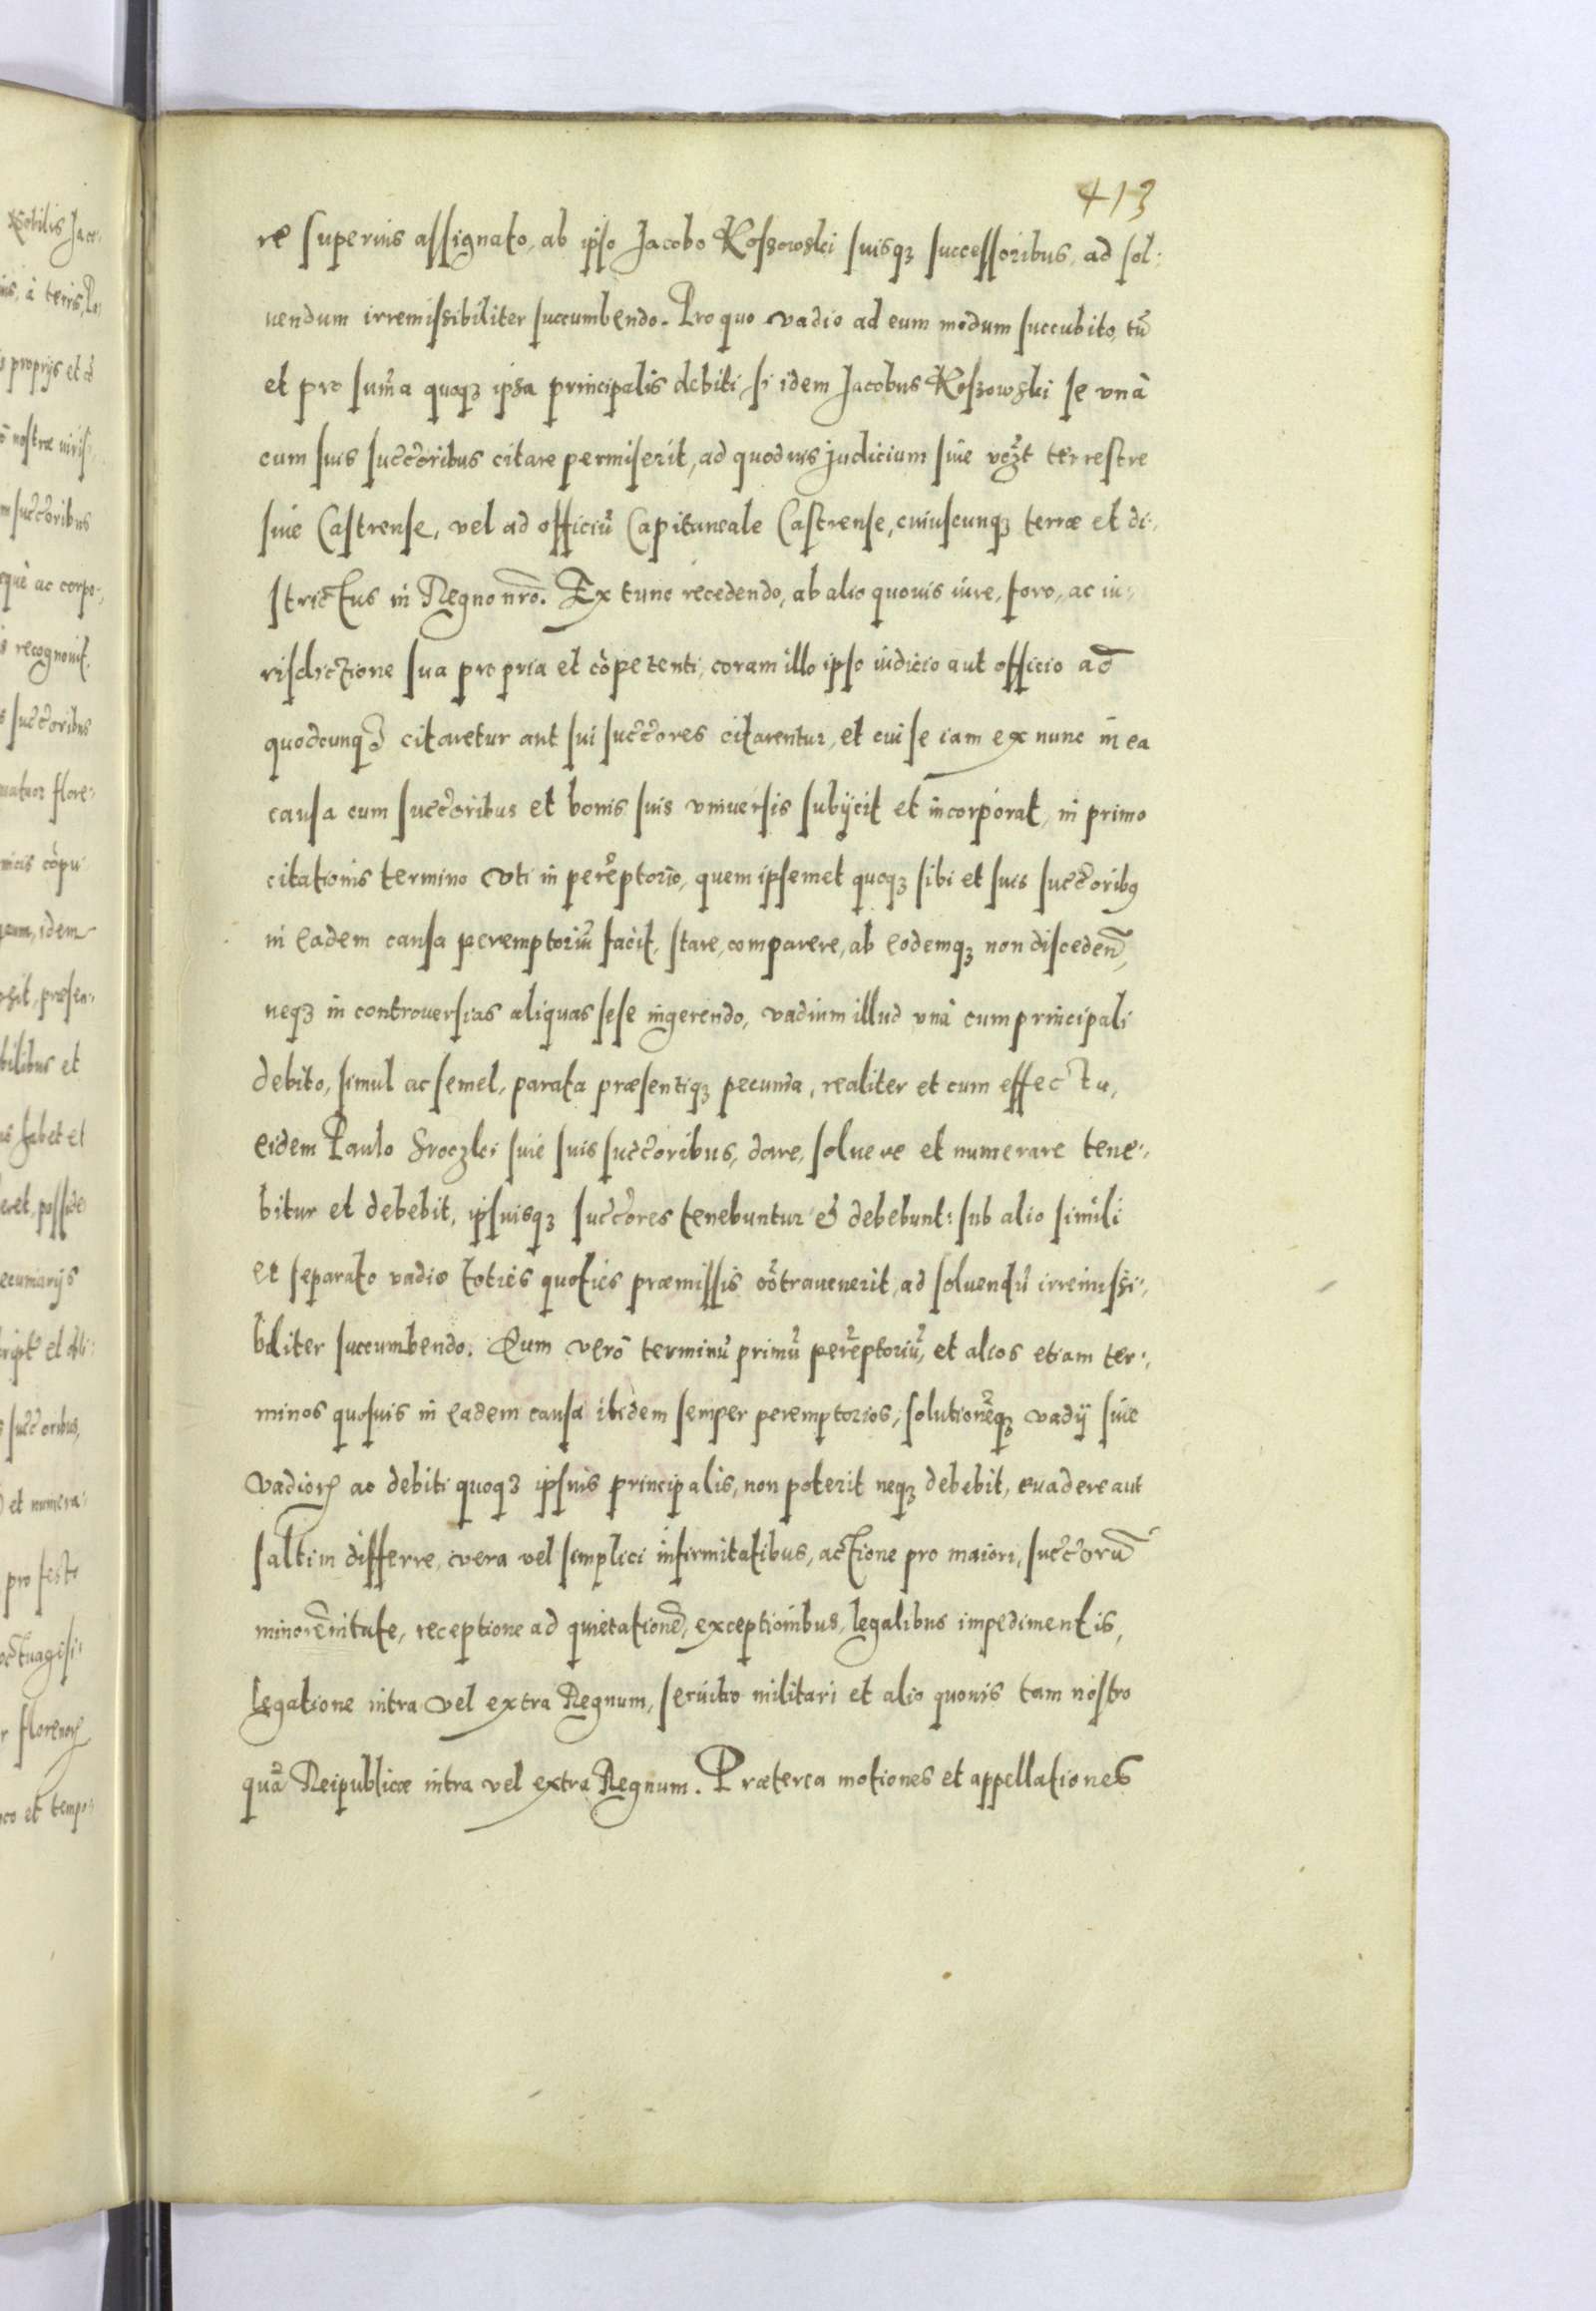 413
re superius assignato, ab ipso Jacobo Koszowski suisqȝ successoribus, ad sol:
uendum irremissibiliter succumbendo. Pro quo vadio ad eum modum succubito, tū
et pro sum̄a quoqȝ ipsa principalis debiti, si idem Jacobus Koszowski se vnà
cum suis succ̄oribus citare permiserit, ad quoduis judicium siue vcȝt terrestre
siue Castrense, vel ad officiū Capitaneale Castrense, cuiuscunqȝ terræ et di:
strictus in Regno nr̄o. Ex tunc recedendo, ab alio quouis iure, foro, ac iu:
risdictione sua propria et cōpetenti, coram illo ipso iudicio aut officio ad
quodcunqȝ citaretur aut sui succ̄ores citarentur, et cui se iam ex nunc in ea
causa cum succ̄oribus et bonis suis vniuersis subijcit et incorporat, in primo
citationis termino vti in perēptorio, quem ipsemet quoqȝ sibi et suis succ̄oribꝰ
in eadem causa peremptoriū facit, stare, comparere, ab eodemqȝ non disceden̄,
neqȝ in controuersias aliquas sese ingerendo, vadium illud vnà cum principali
debito, simul ac semel, parata præsentiqȝ pecunia, realiter et cum effectu,
eidem Paulo Sroczki siue suis succ̄oribus, dare, soluere et numerare tene:
bitur et debebit, ipsiusqȝ succ̄ores tenebuntur & debebunt: sub alio simili
et separato vadio toties quoties præmissis cōtrauenerit, ad soluendū irremissi:
biliter succumbendo. Quem verò terminū primū perēptoriū, et alios etiam ter:
minos quosuis in eadem causa ibidem semper peremptorios, solutionēqȝ vadij siue
vadioꝝ ac debiti quoqȝ ipsius principalis, non poterit neqȝ debebit, euadere aut
saltim differre, vera vel simplici infirmitatibus, actione pro maiori, succ̄orū
minorēnitate, receptione ad quietationē, exceptionibus, legalibus impedimentis,
legatione intra vel extra Regnum, seruitio militari et alio quouis tam nostro
quā Reipublicæ intra vel extra Regnum. Præterea motiones et appellationes